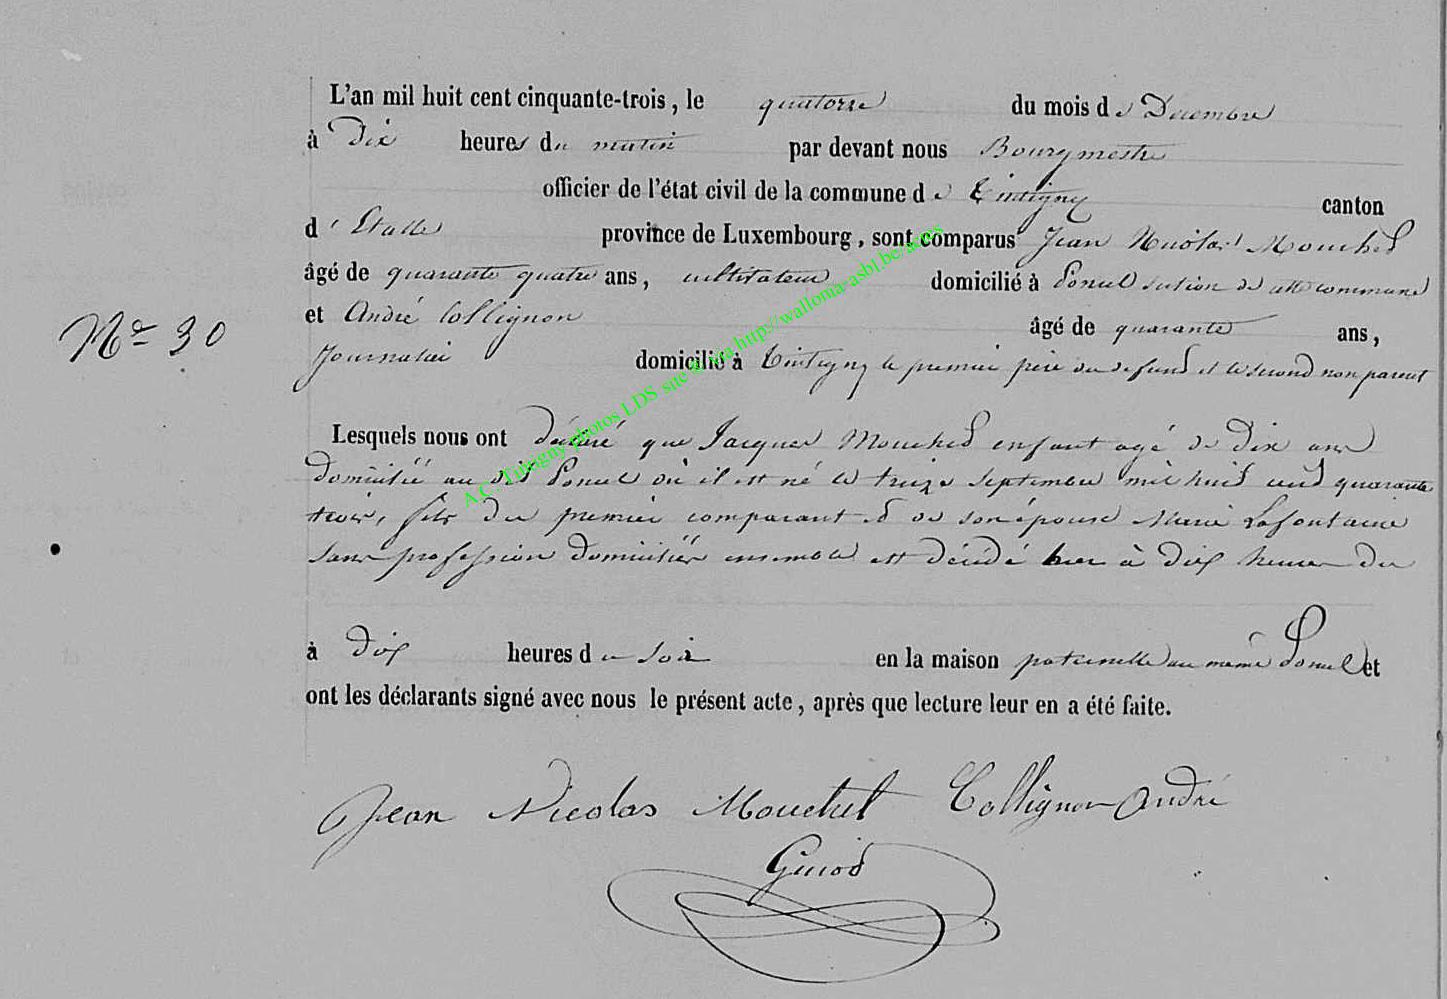 L'an mil huit cent cinquante-trois, le quatorze du mois de Décembre
à Dix heures du matin par devant nous Bourgmestre
officier de l'état civil de la commune de Tintigny canton
d'Etalle province de Luxembourg, sont comparus Jean Nicolas Mouchet
âgé de quarante quatre ans, cultivateur domicilié à Poncel section de cette commune
et André Collignon âgé de quarante ans,
Journalier domicilié à Tintigny le premier père du defunt et le second non parent
N° 30
Lesquels nous ont déclaré que Jacques Mouchet enfant agé de dix ans
domicilié au dit Poncel où il est né le treize septembre mil huit cent quarante
trois, fils du premier comparant et de son épouse Marie Lafontaine
sans profession domiciliés ensemble est décédé hier à dix heures du
à dix heures du soir en la maison paternelle au même Poncel et
ont les déclarants signé avec nous le présent acte, après que lecture leur en a été faite.
Jean Nicolas Mouchet Collignon André
Guiot
A.C. Tintigny photos LDS sur via http://walloma-asbl.be/actes